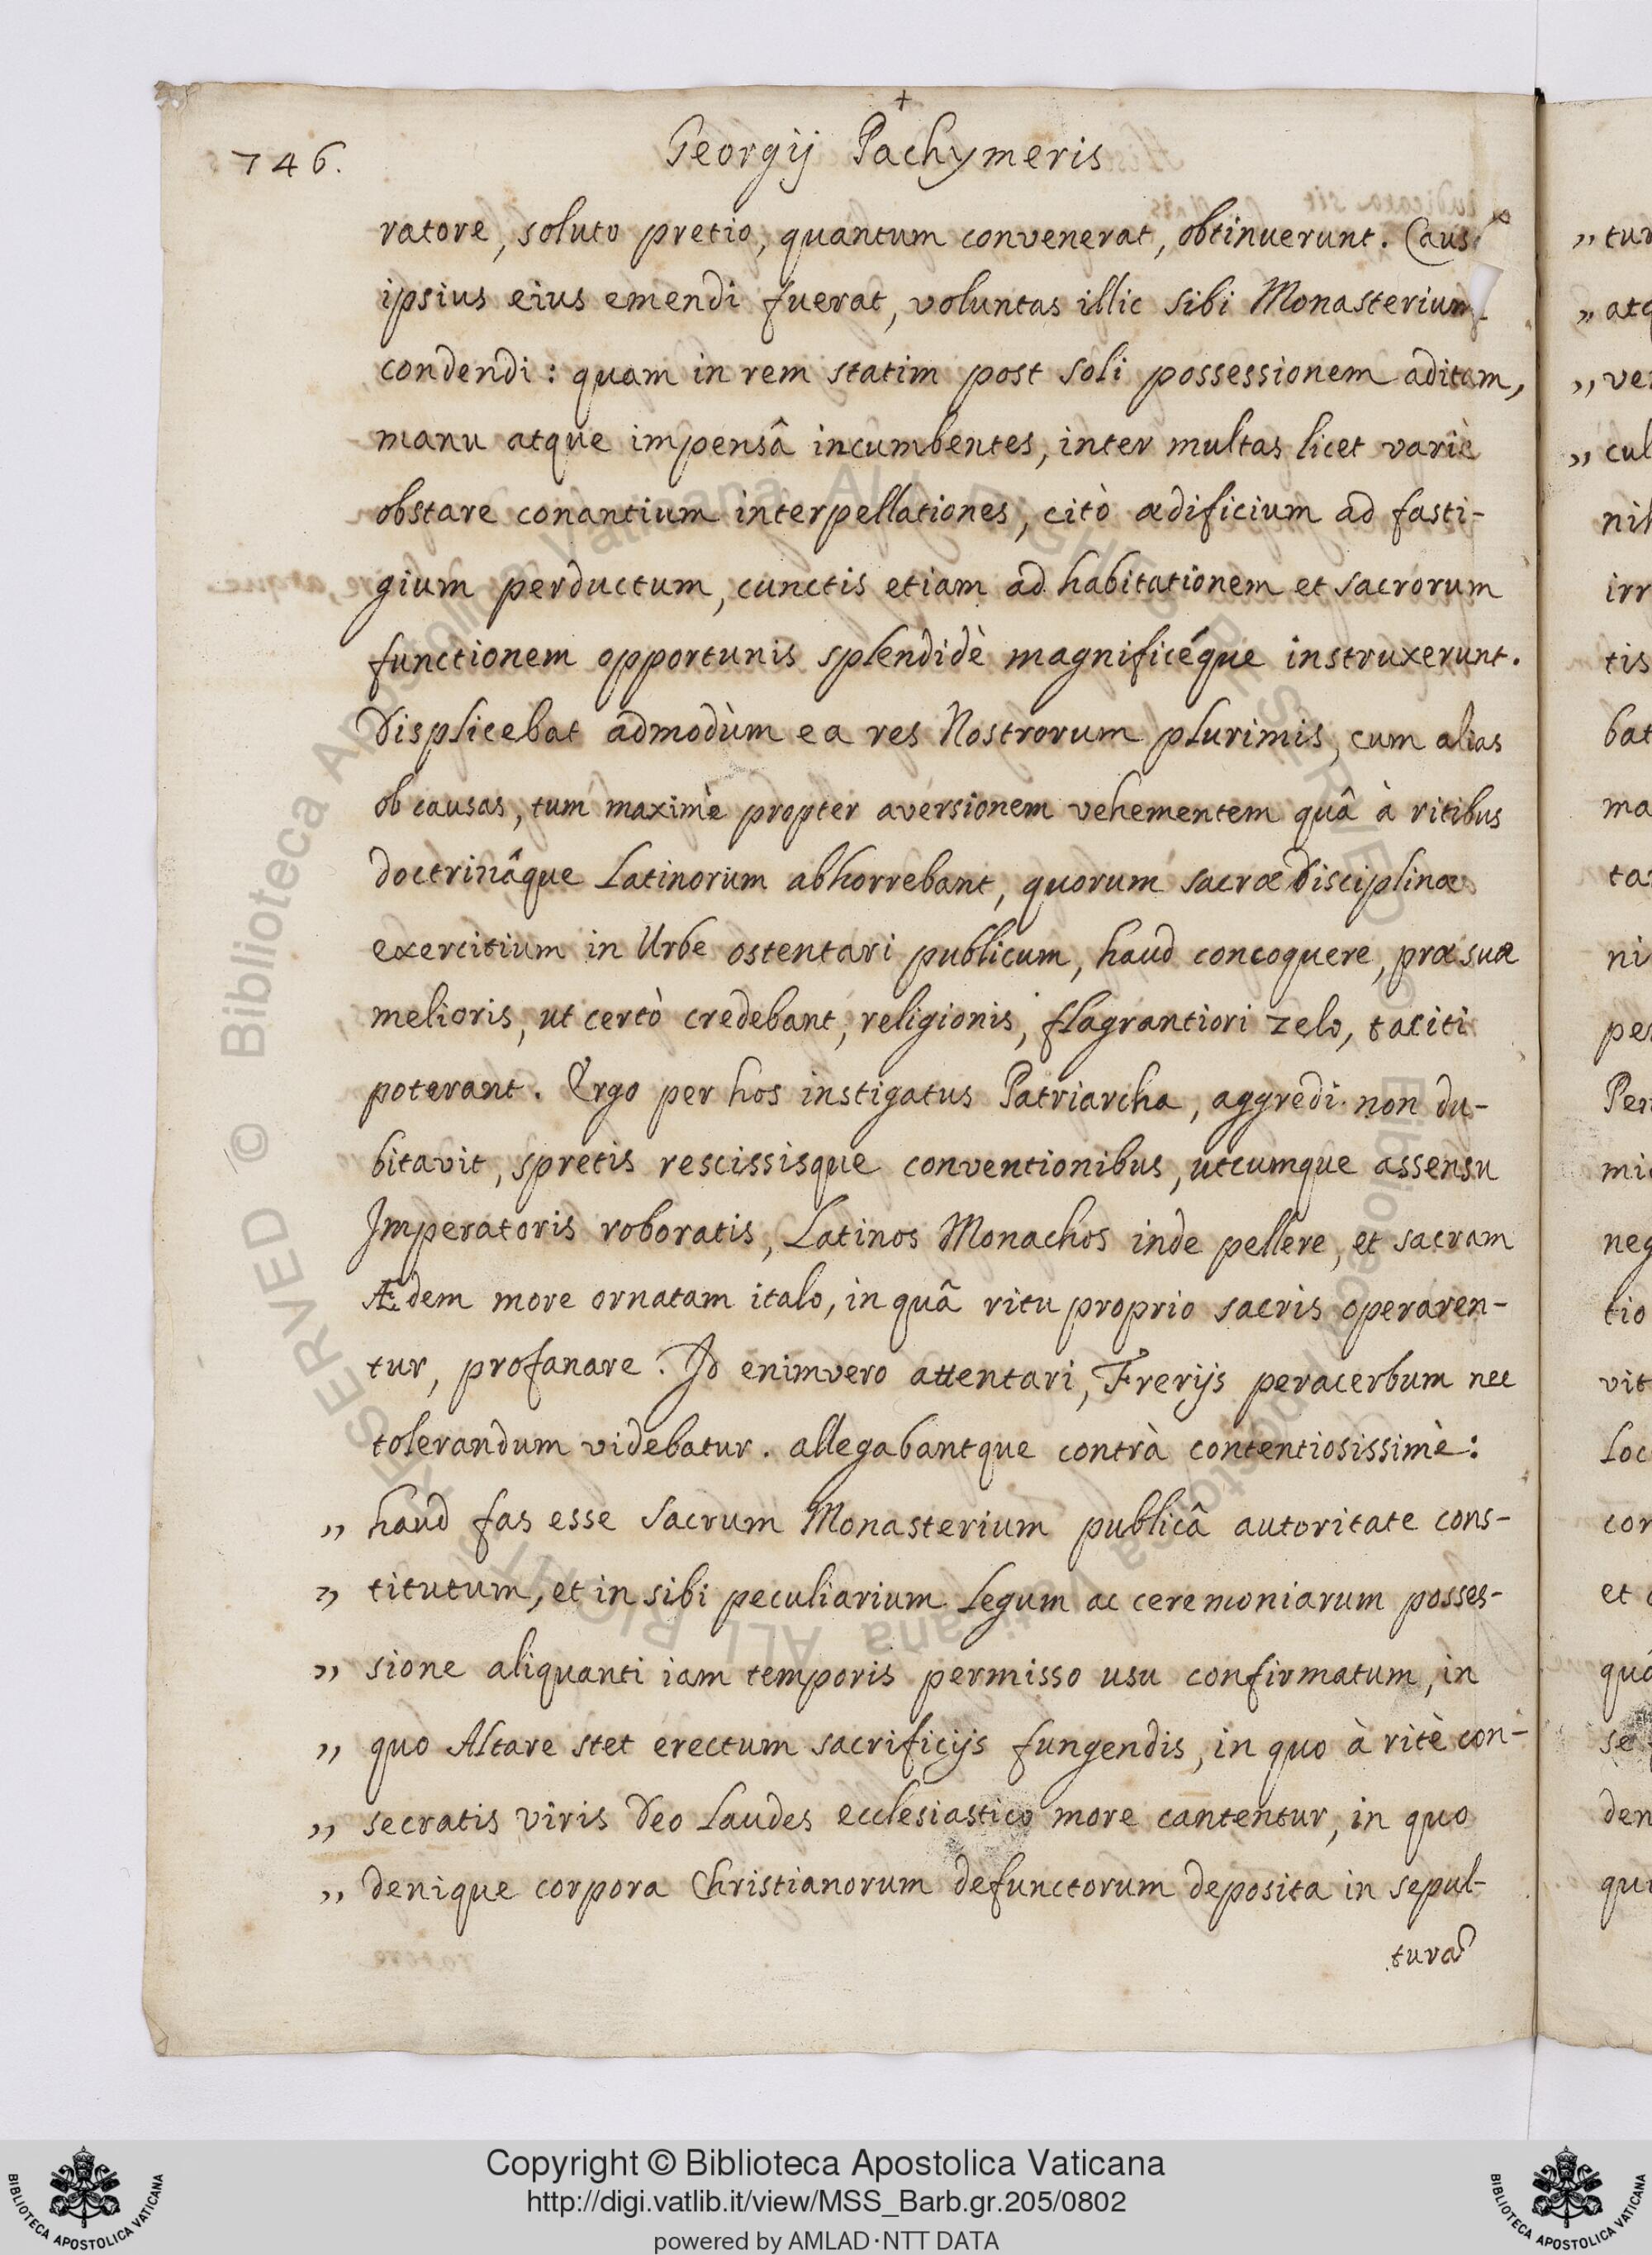 +
746. Georgij Pachymeris
ratore, soluto pretio, quantum convenerat, obtinuerunt. Caus
ipsius eius emendi fuerat, voluntas illic sibi Monasterium
condendi: quam in rem statim post soli possessionem aditam,
manu atque impensâ incumbentes, inter multas licet variè
obstare conantium interpellationes, citò ædificium ad fasti-
gium perductum, cunctis etiam ad habitationem et sacrorum
functionem opportunis splendidè magnificéque instruxerunt.
Displicebat admodùm ea res Nostrorum plurimis, cum alias
ob causas, tum maximè propter aversionem vehementem quâ à ritibus
doctrinâque Latinorum abhorrebant, quorum sacræ Disciplinæ
exercitium in Urbe ostentari publicum, haud concoquere, præ suæ
melioris, ut certò credebant, religionis, flagrantiori zelo, taciti
poterant. Ergo per hos instigatus Patriarcha, aggredi non du-
bitavit, spretis rescissisque conventionibus, utcumque assensu
Imperatoris roboratis, Latinos Monachos inde pellere, et sacram
Ædem more ornatam italo, in quâ ritu proprio sacris operaren-
tur, profanare. Id enimvero attentari, Frerijs peracerbum nec
tolerandum videbatur. allegabantque contrà contentiosissimè:
,, haud fas esse Sacrum Monasterium publicâ autoritate cons-
,, titutum, et in sibi peculiarium Legum ac ceremoniarum posses-
,, sione aliquanti iam temporis permisso usu confirmatum, in
,, quo Altare stet erectum sacrificijs fungendis, in quo à ritè con-
,, secratis viris Deo Laudes ecclesiastico more cantentur, in quo
,, denique corpora Christianorum defunctorum deposita in sepul-
tura
,, tur
,, atq
,, ve
,, cul
nih
irr
tis
bat
ma
ta
ni
pe
Per
mi
neg
tio
vit
Loc
con
et
quo
se
den
qui
Copyright © Biblioteca Apostolica Vaticana
http://digi.vatlib.it/view/MSS_Barb.gr.205/0802
powered by AMLAD·NTT DATA
BIBLIOTECA APOSTOLICA VATICANA
BIBLIOTECA APOSTOLICA VATICANA
© Biblioteca Apostolica Vaticana ALL RIGHTS RESERVED